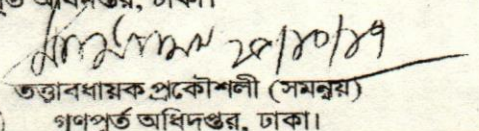 ২৮/১০/১৭
তত্ত্বাবধায়ক প্রকৌশলী (সমন্বয়)
গণপূর্ত অধিদপ্তর, ঢাকা।